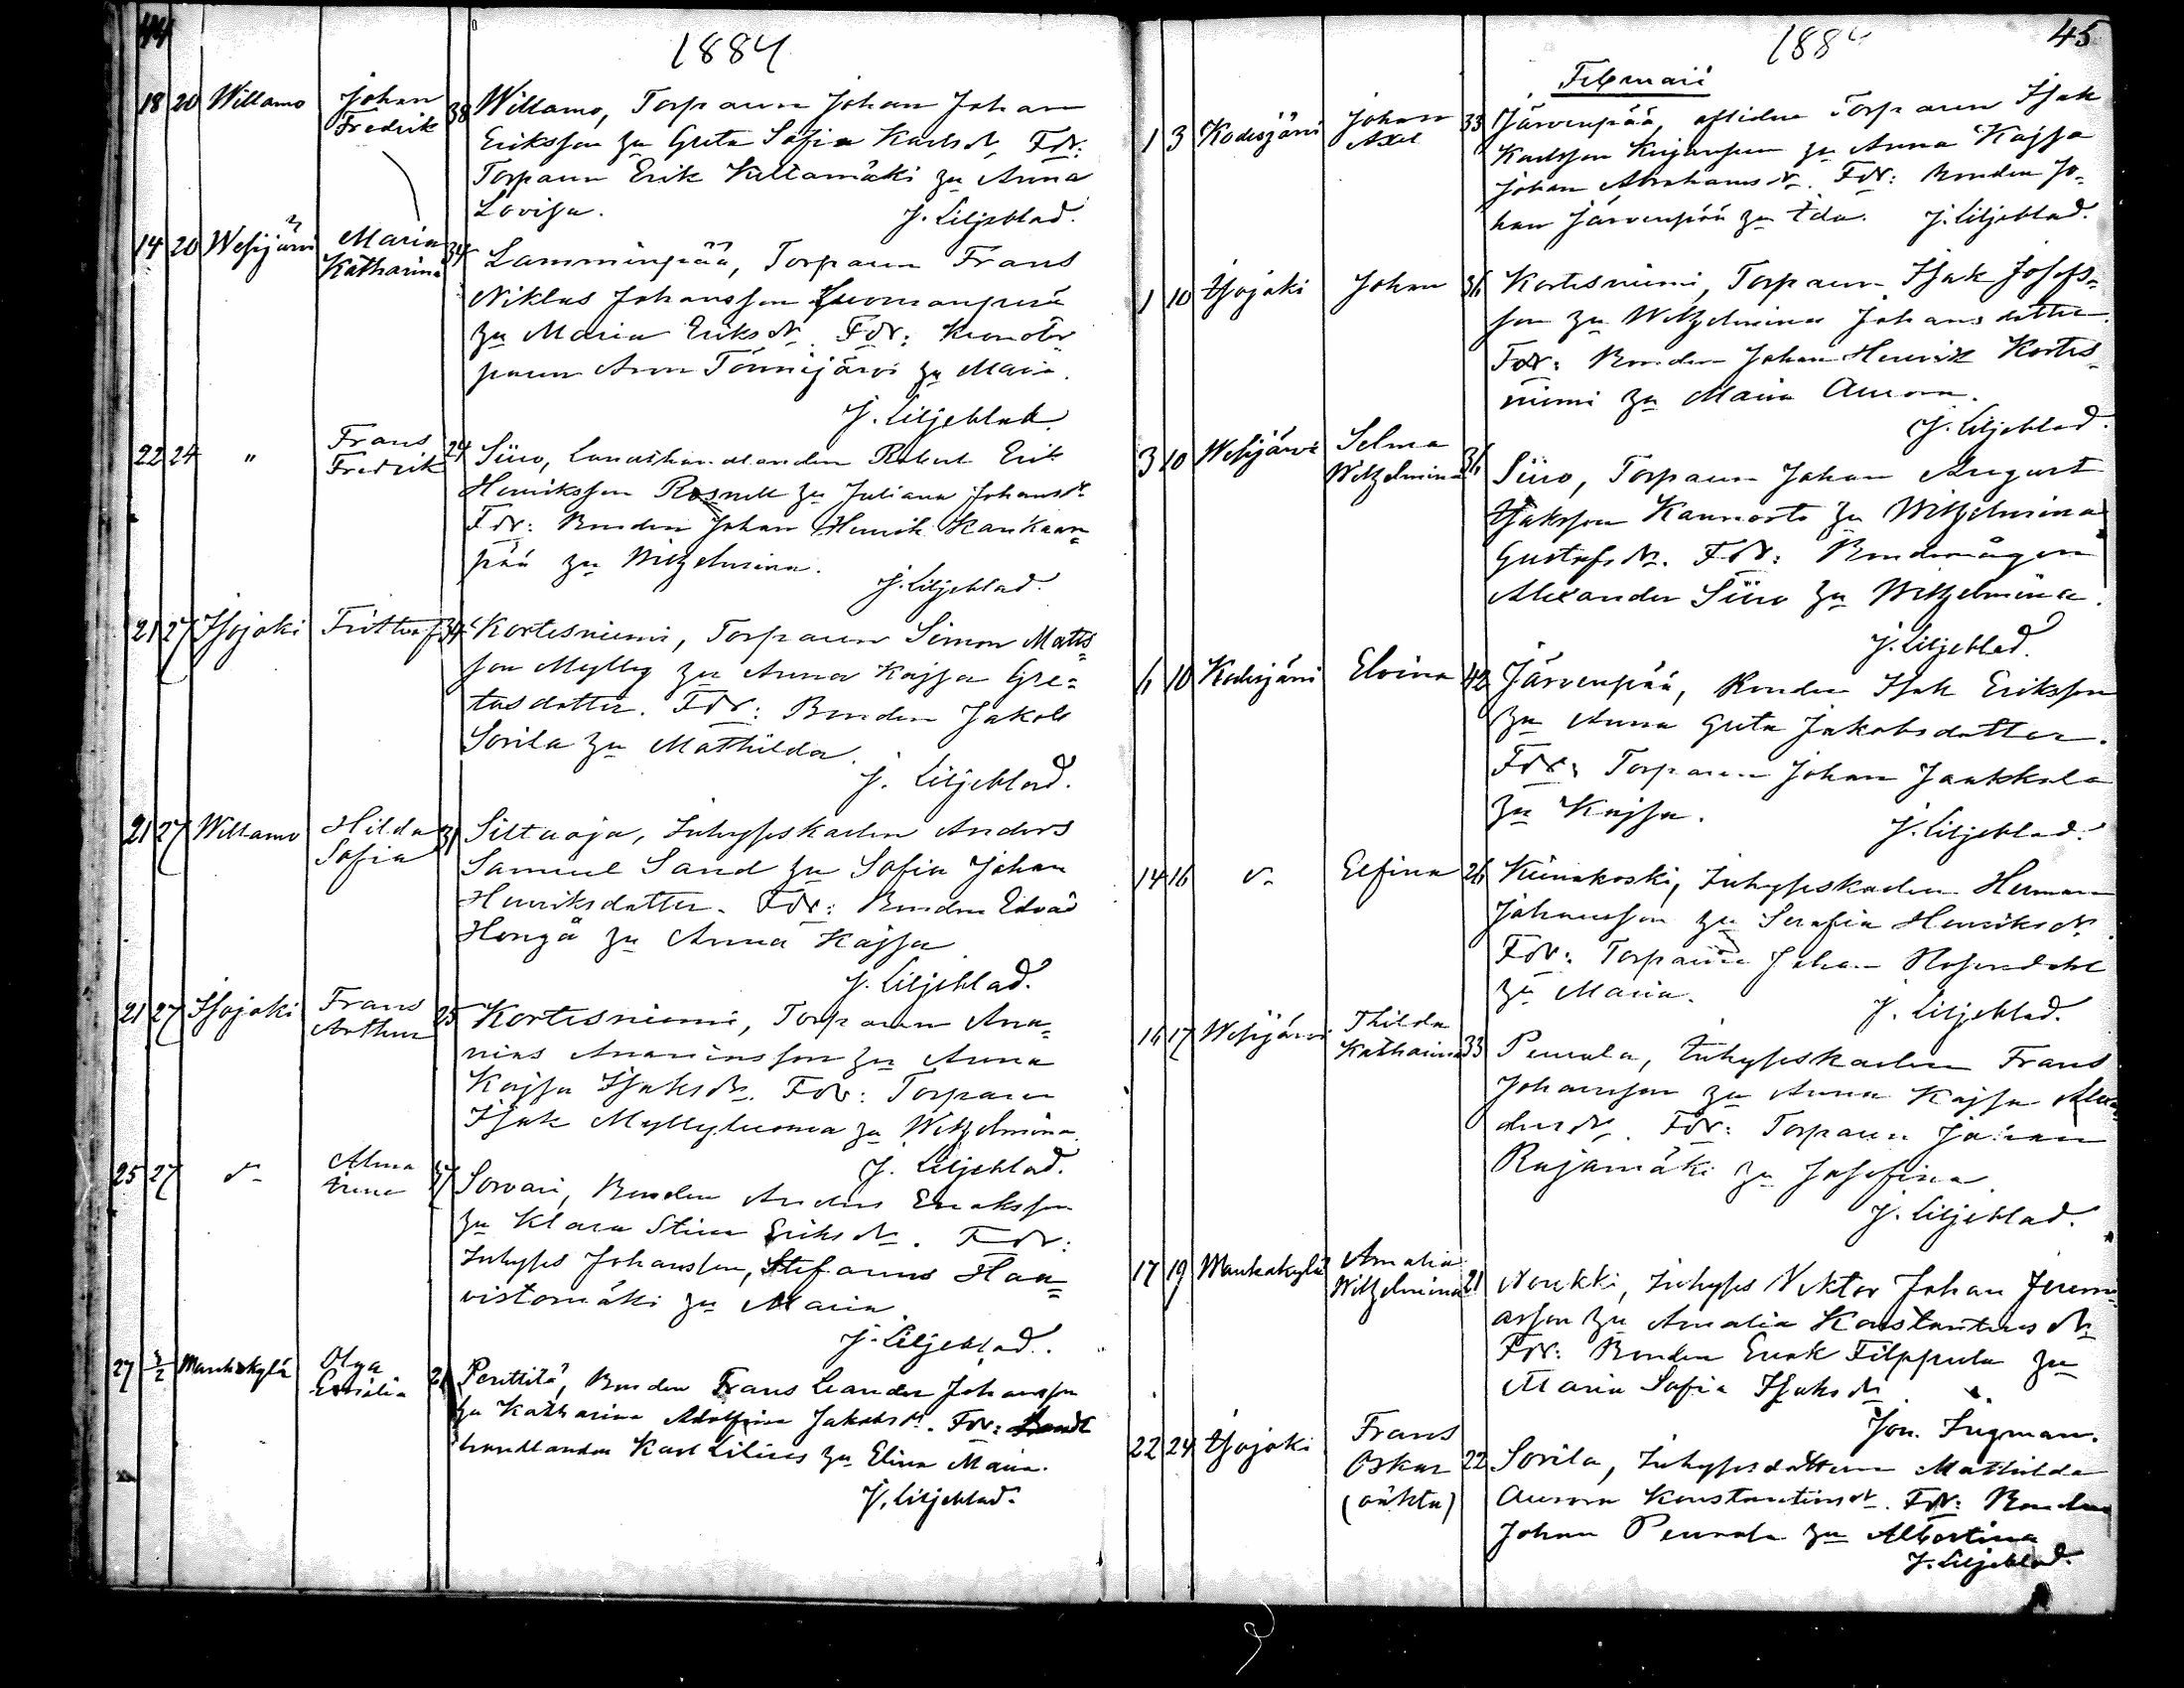 44
1884
18 20 Willamo Johan Fredrik 38 Willamo, Torparen Johan Johan
Eriksson hu Greta Sofia Karlsdr Fdr:
Torparen Erik Kultamäki hu Anna
Lovisa. J. Liljeblad.
14 20 Wesijärvi Maria Katharina 34 Lamminpää, Torparen Frans
Niklas Johansson
hu Maria Eriksdr Fdr: Kronotor
paren Aron Tönnijärvi hu Maria.
J. Liljeblad
22 24 " Frans Fredrik 24 Siiro, Landthandlanden Robert Erik
Henriksson Rosnell hu Juliana Johansdr
Fdr: Bonden Johan Henrik Kankaan=
pää hu Wilhelmina.
J. Liljeblad.
21 27 Isojoki Frithiof 34 Kortesniemi, Torparen Simon Matts=
son Mylly hu Anna Kajsa Gre=
tasdotter. Fdr: Bonden Jakob
Sorila hu Mathilda.
J. Liljeblad.
21 27 Willamo Hilda Sofia 31 Siltaoja, Inhyseskarlen Anders
Samuel Sand hu Sofia Johan
Henriksdotter. Fdr: Bonden Edvard
Hongå hu Anna Kajsa
J. Liljeblad.
21 27 Isojoki Frans Arthur 25 Kortesniemi, Torparen Ana=
nias Ananiasson hu Anna
Kajsa Isaksdr. Fdr: Torparen
Isak Myllyluoma hu Wilhelmina.
J. Liljeblad.
25 27 d:o Alma Irene 37 Sorvari, Bonden Anders Enaksson
hu Klara Stina Eriksdr. Fdr:
Inhyses Johansson, Stefanus Haa=
vistomäki hu Maria.
J. Liljeblad.
27 3/2 Manhakylä Olga Emilia 21 Penttilä, Bonden Frans Leander Johansson
hu Katharina Adolfina Jakobsdr. Fdr: Landt
handlanden Karl Lilius hu Elina Maria.
J. Liljeblad.
45
1884
Februarii
1 3 Kodesjärvi Johan Axel 33 Järvenpää, aflidne Torparen Isak
Karlsson hu Anna Kajsa
Johan Abrahamsdr. Fdr: Bonden Jo=
han Järvenpää hu Ida. J. Liljeblad.
1 10 Isojoki Johan 36 Kortesniemi, Torparen Isak Josefs=
son hu Wilhelmina Johansdotter.
Fdr: Bonden Johan Henrik Kortes=
niemi hu Maria Aurora.
J. Liljeblad.
3 10 Wesijärvi Selma Wilhelmina 36 Siiro, Torparen Johan August
Isaksson Kannosto hu Wilhelmina
Gustafsdr. Fdr: Bondemågen
Alexander Siiro hu Wilhelmina.
J. Liljeblad.
6 10 Kodesjärvi Elvina 42 Järvenpää, Bonden Isak Eriksson
hu Anna Greta Jakobsdotter.
Fdr: Torparen Johan Jaakkola
hu Kajsa. J. Liljeblad.
14 16 d:o Elfina 26 Kiinakoski, Inhyseskarlen Herman
Johansson hu Serafia Henriksdr.
Fdr: Torparen Johan Rosendahl
hu Maria. J. Liljeblad.
16 17 Wesijärvi Thilda Katharina 33 Peurala, Inhyseskarlen Frans
Johansson hu Anna Kajsa Alexan
dersdr. Fdr: Torparen Johan
Rajamäki hu Josefina.
J. Liljeblad.
17 19 Manhakylä Amalia Wilhelmina 21 Noukki, Inhyses Viktor Johan Jerem=
iasson hu Amalia Konstantinsdr
Fdr: Bonden Enok Filppula hu
Maria Sofia Isaksdr
Jon. Ingman.
22 24 Isojoki Frans Oskar (oäkta) 22 Sorila, Inhysesdottern Mathilda
Aurora Konstantinsdr. Fdr: Bonden
Johan Peurala hu Albertina
J. Liljeblad.